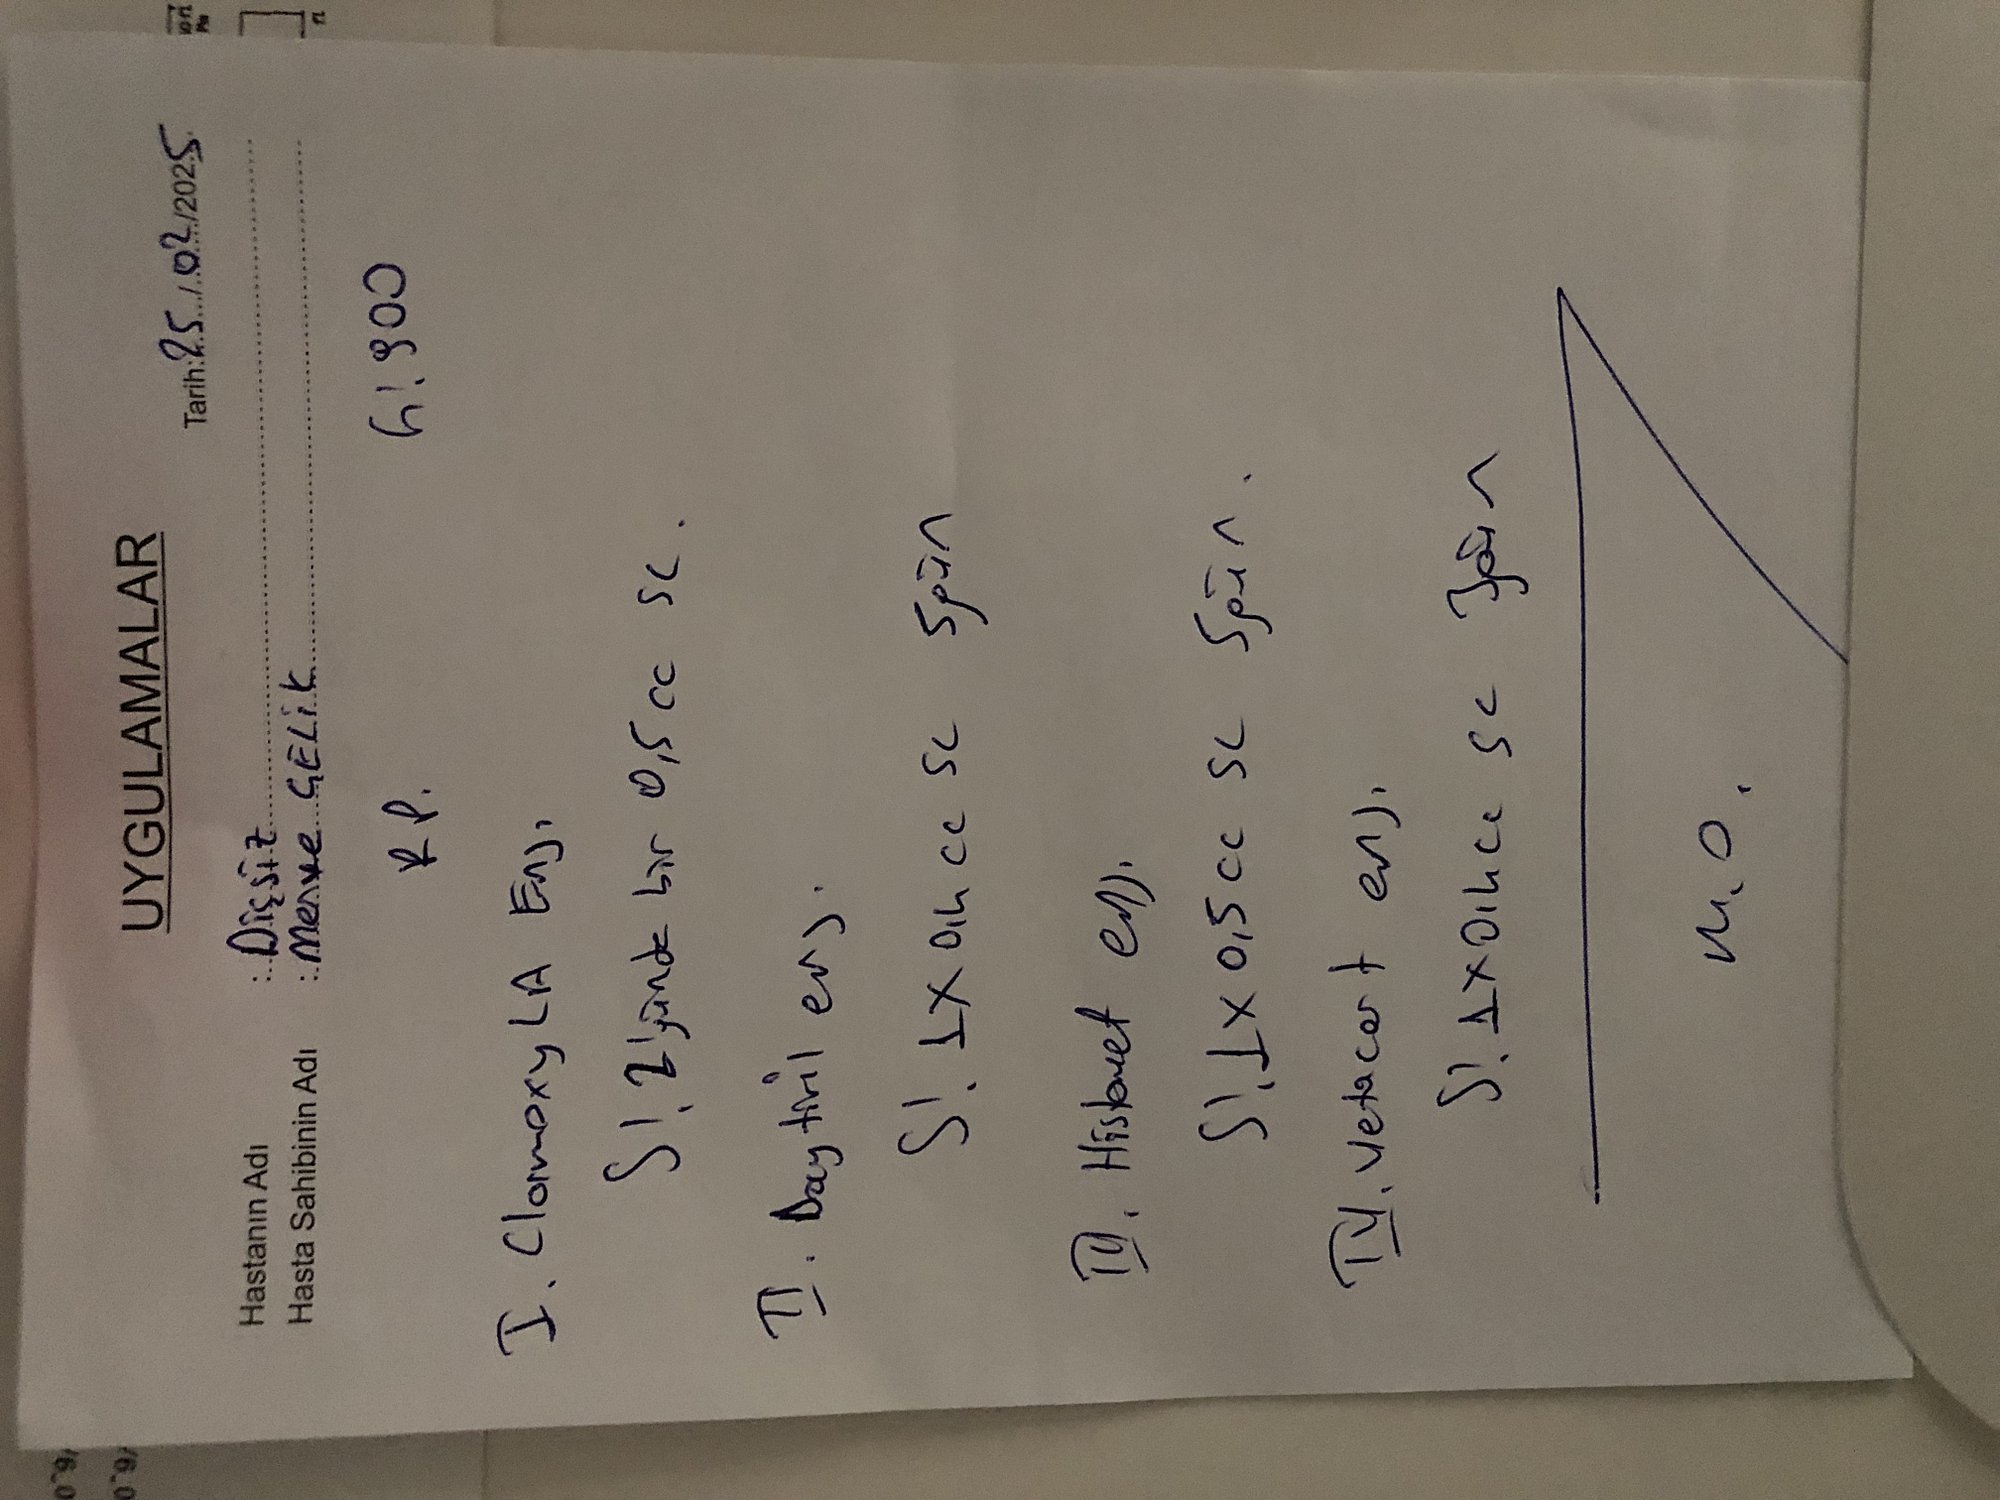 UYGULAMALAR
Tarih: 25/02/2025
Hastanın Adı : Dişsiz
Hasta Sahibinin Adı : Merve ÇELİK
RP. 4!.900
I. ClamoxyLA Enj.
S!. 2 günde bir 0,5 cc sc.
II. Baytril enj.
S!. 1x0,4 cc sc 5 gün
III. Histavet enj.
S!. 1x0,5 cc sc 5 gün.
IV. Vetacort enj.
S!. 1x0,4 cc sc 3 gün
M.O.